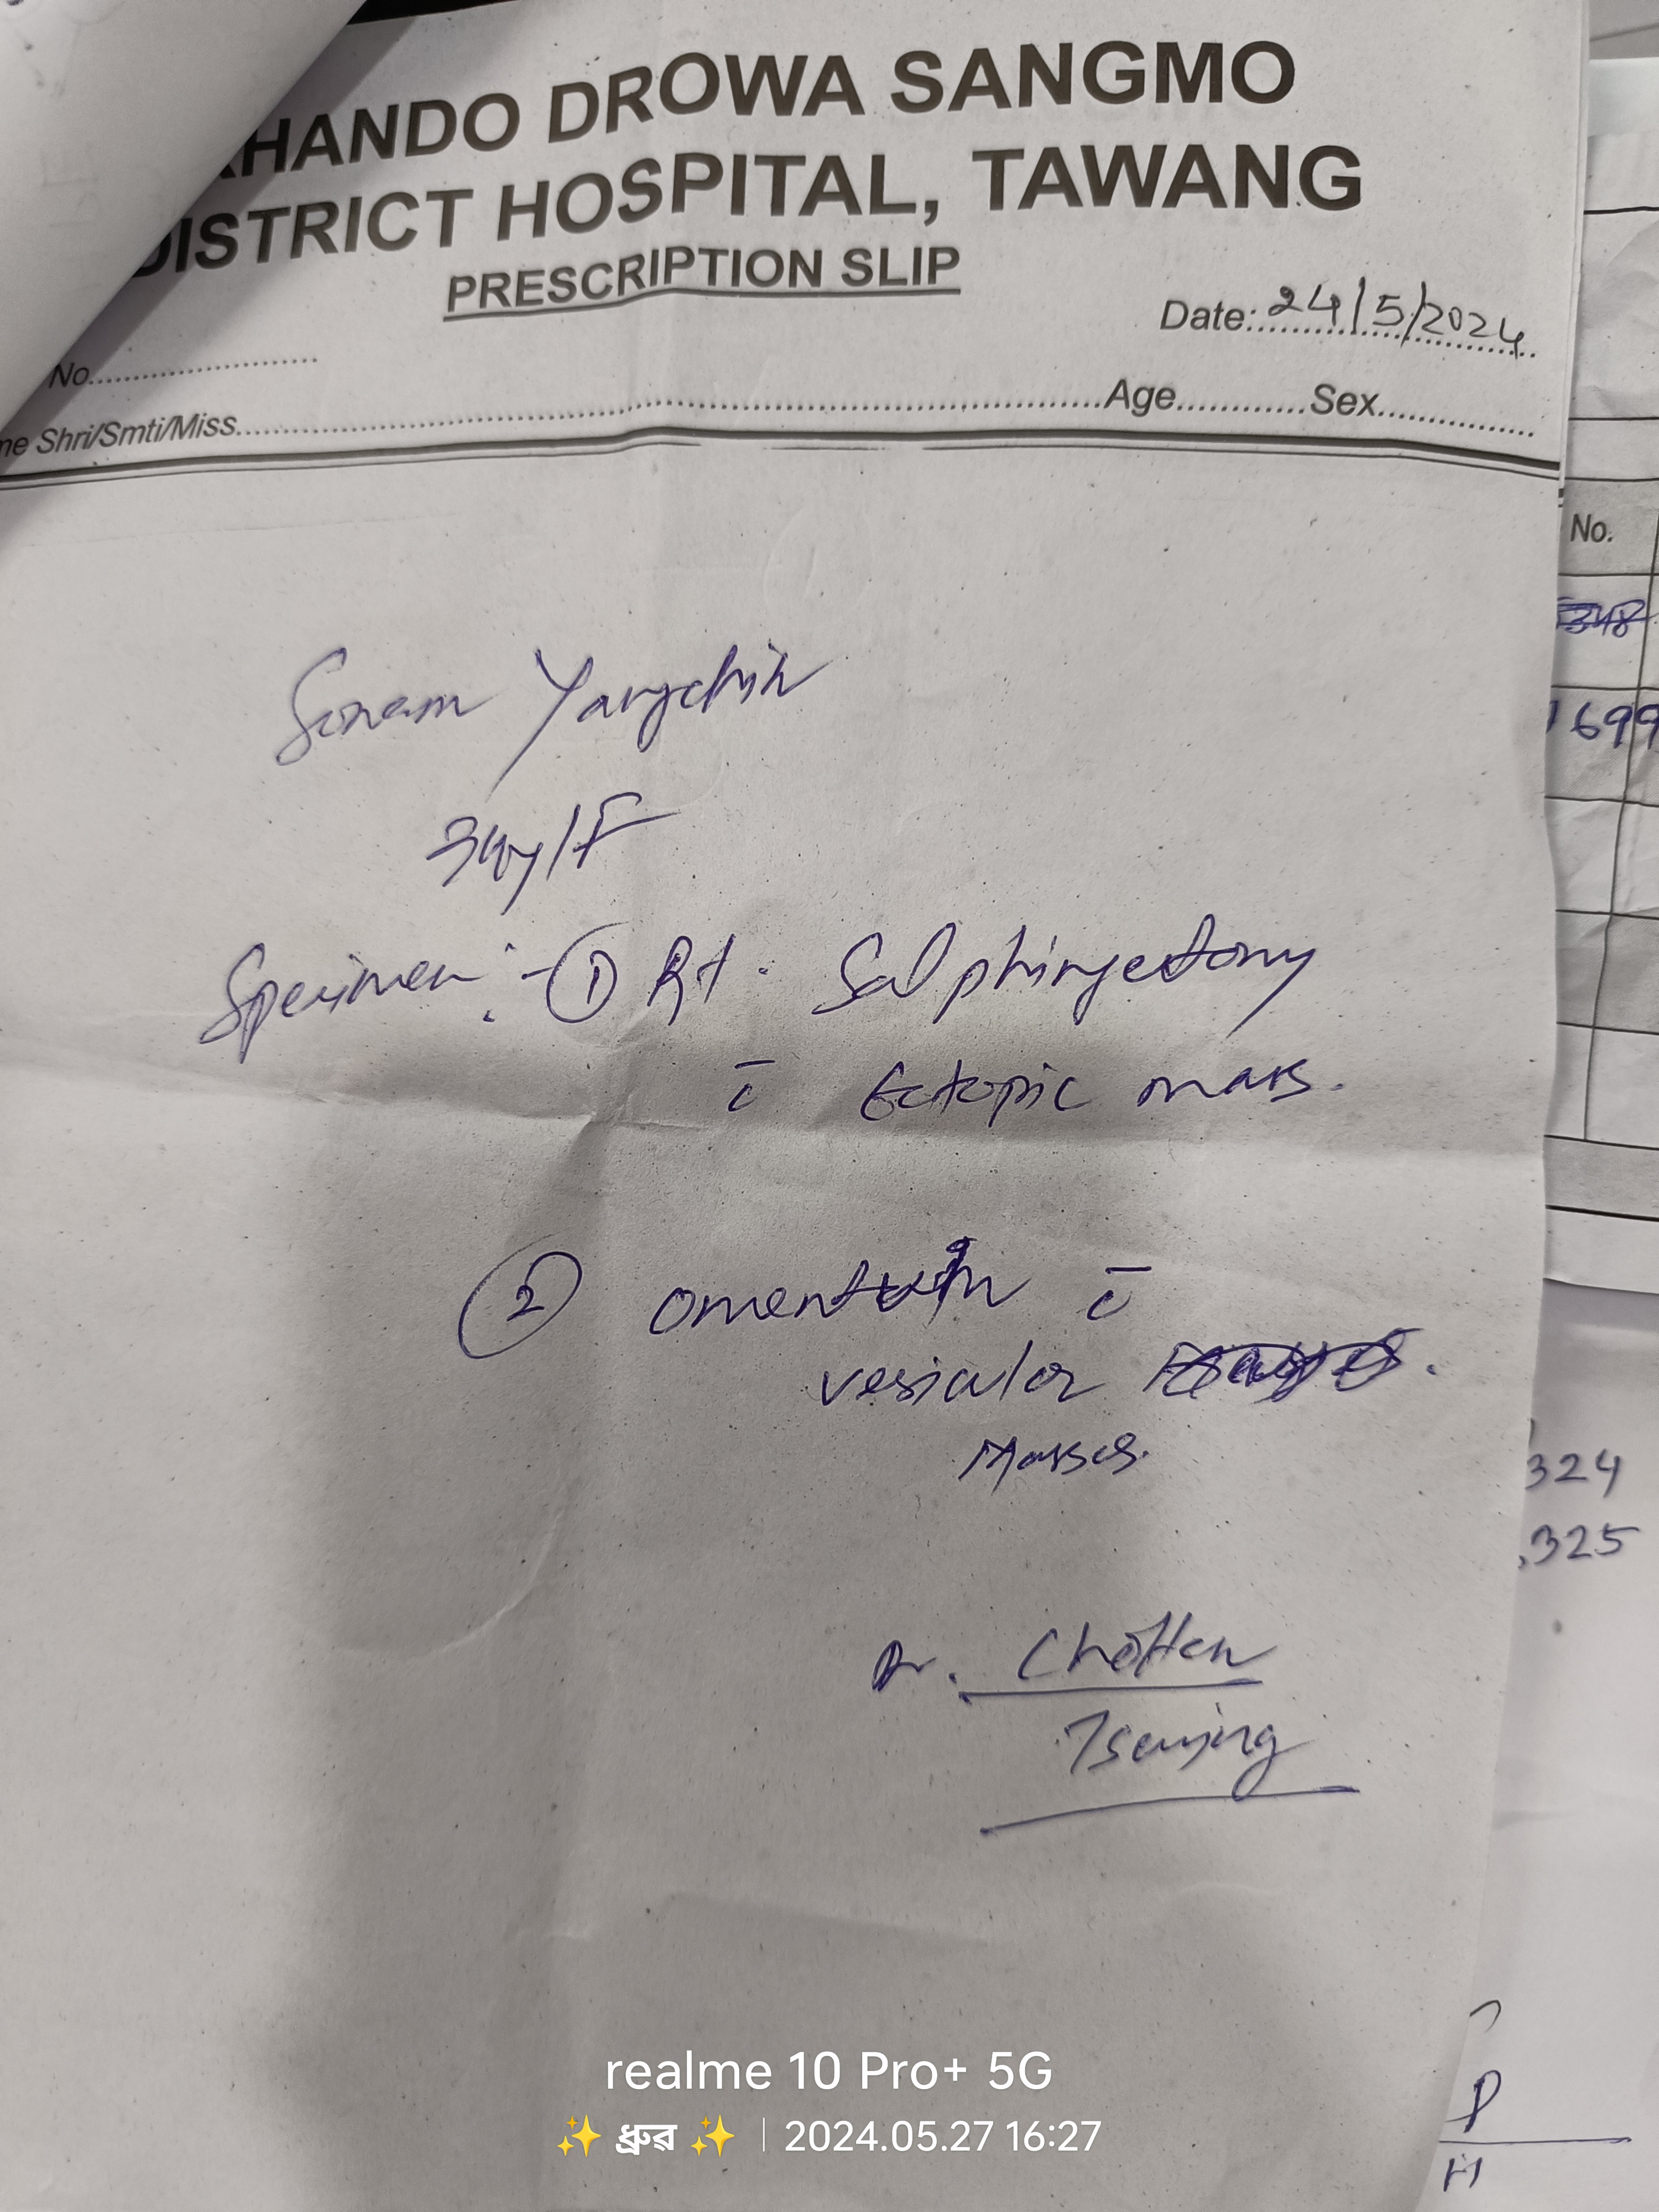 HANDO DROWA SANGMO
DISTRICT HOSPITAL, TAWANG
PRESCRIPTION SLIP
Date: 24/5/2024
No.
me Shri/Smti/Miss. Age Sex
Sonam Yangchin
34y/F
Specimen :- ① Rt. Salphingectomy
c̄ Ectopic mass.
② omentum c̄
vesicular
Masses.
Dr. Chotten
Tsering
No.
348
1699
324
325
P
H
realme 10 Pro+ 5G
✨ ধ্ৰুৱ ✨ | 2024.05.27 16:27